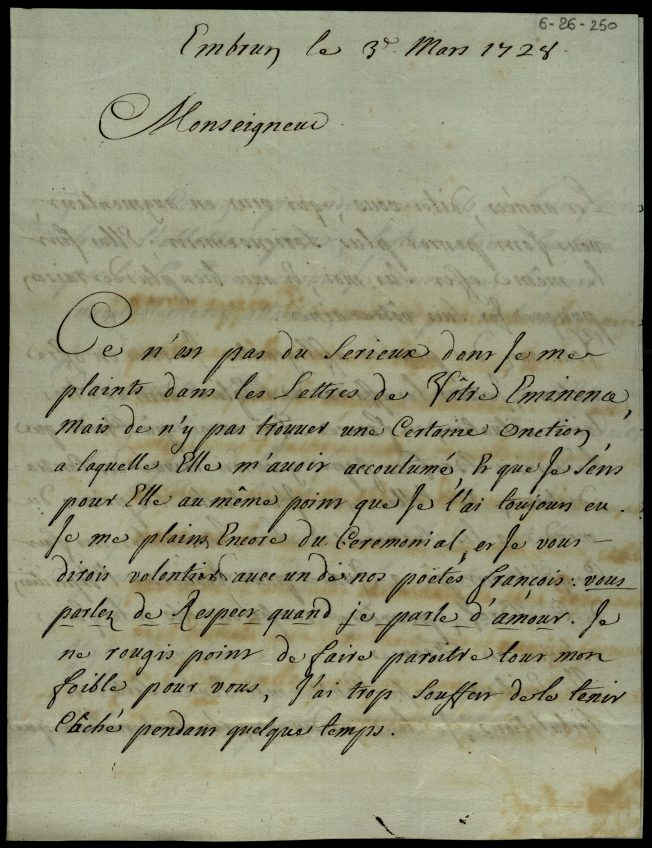 6-26-250
Embrun le 3e. Mars 1728.
Monseigneur
Ce n'est pas du Serieux dont Je me
plaints dans les Lettres de Vôtre Eminence,
mais de n'y pas trouuer une Certaine Onction
a laquelle Elle m'auoit accoutumé, Et que Je Sens
pour Elle au même point que Je l'ai toujours eu.
Je me plains Encore du Ceremonial, et Je vous
dirois volontiers auec un de nos poëtes françois: vous
parlez de Respect quand je parle d'amour. Je
ne rougis point de faire paroitre tout mon
foible pour vous, J'ai trop Souffert de le tenir
Caché pendant quelque temps.